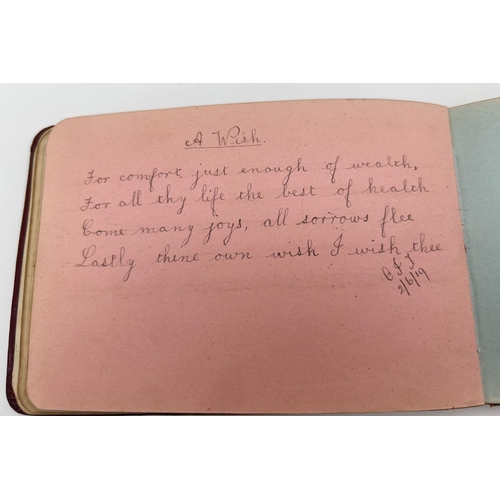 A Wish.
For comfort just enough of wealth,
For all thy life the best of health
Come many joys, all sorrows flee
Lastly thine own wish I wish thee
2/6/19